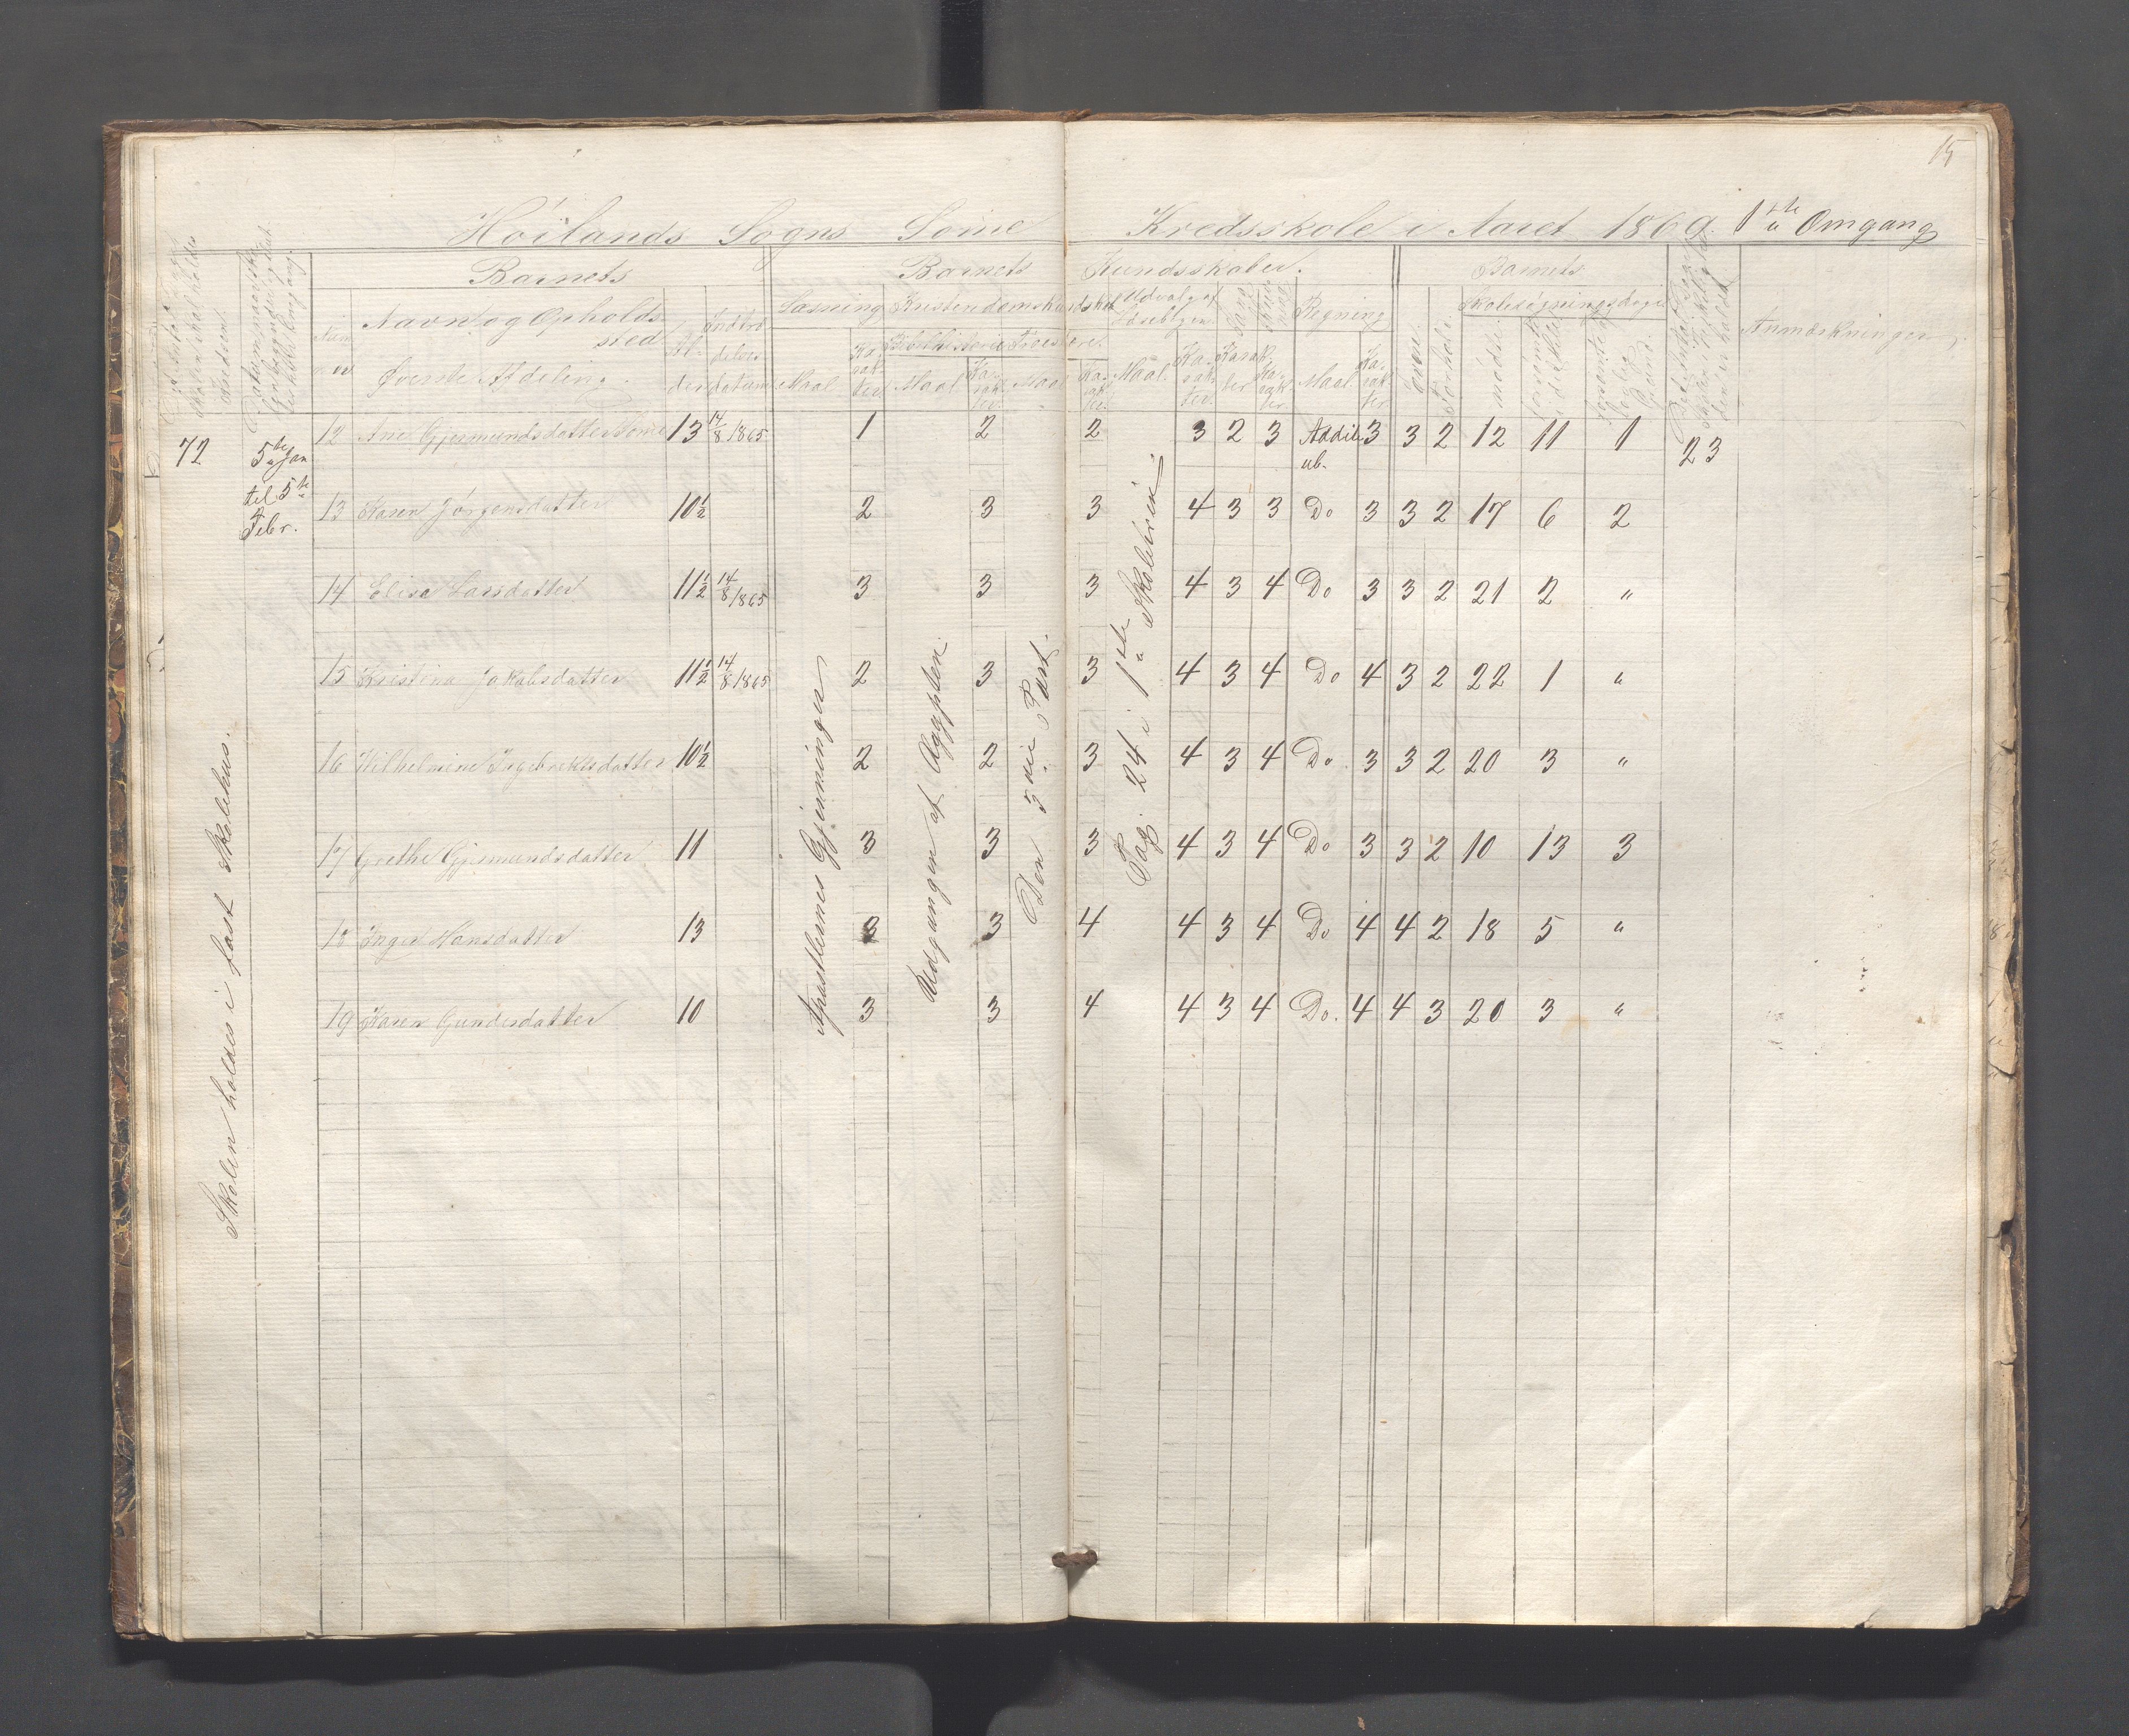 15
Höilands Sogns Somme Kredsskole i Aaret 1869. 1ste Omgang
Barnets
Barnets Kundskaber.
Barnets
Navn og Opholdssted
Øverste Afdeling.
Læsning
Kristendomskundskab
Udvalg af Læsebogen
Sang
Regning
Evner.
Forhold.
Skolesøgningsdage
mødte.
Anmærkninger.
Bibelhistorie
Maal.
Maal.
Maal.
Maal.
72
5te Jan
til 5te
Febr.
Skolen holdes i fast Skolehus.
Apostlernes Gjerninger
Udgangen af Ægypten.
Den 3die Part.
Pag. 24 i 1ste Skoletrin
12 Ane Gjesmundsdatter Somme 13 14/8 1865 1 2 2 3 2 3 Addit. 3 3 2 12 11 1 23
ub.
13 Karen Jørgensdatter 10½ 2 3 3 4 3 3 Do 3 3 2 17 6 2
14 Elisa Larsdatter 11½ 14/8 1865 3 3 3 4 3 4 Do 3 3 2 21 2 "
15 Kristina Jakobsdatter 11½ 14/8 1865 2 3 3 4 3 4 Do 4 3 2 22 1 "
16 Wilhelmine Ingebretsdatter 10½ 2 2 3 4 3 4 Do. 3 3 2 20 3 "
17 Grethe Gjesmundsdatter 11 3 3 3 4 3 4 Do 3 3 2 10 13 3
18 Inger Hansdatter 13 3 3 4 4 3 4 Do 4 4 2 18 5 "
19 Karen Gundersdatter 10 3 3 4 4 3 4 Do. 4 4 3 20 3 "